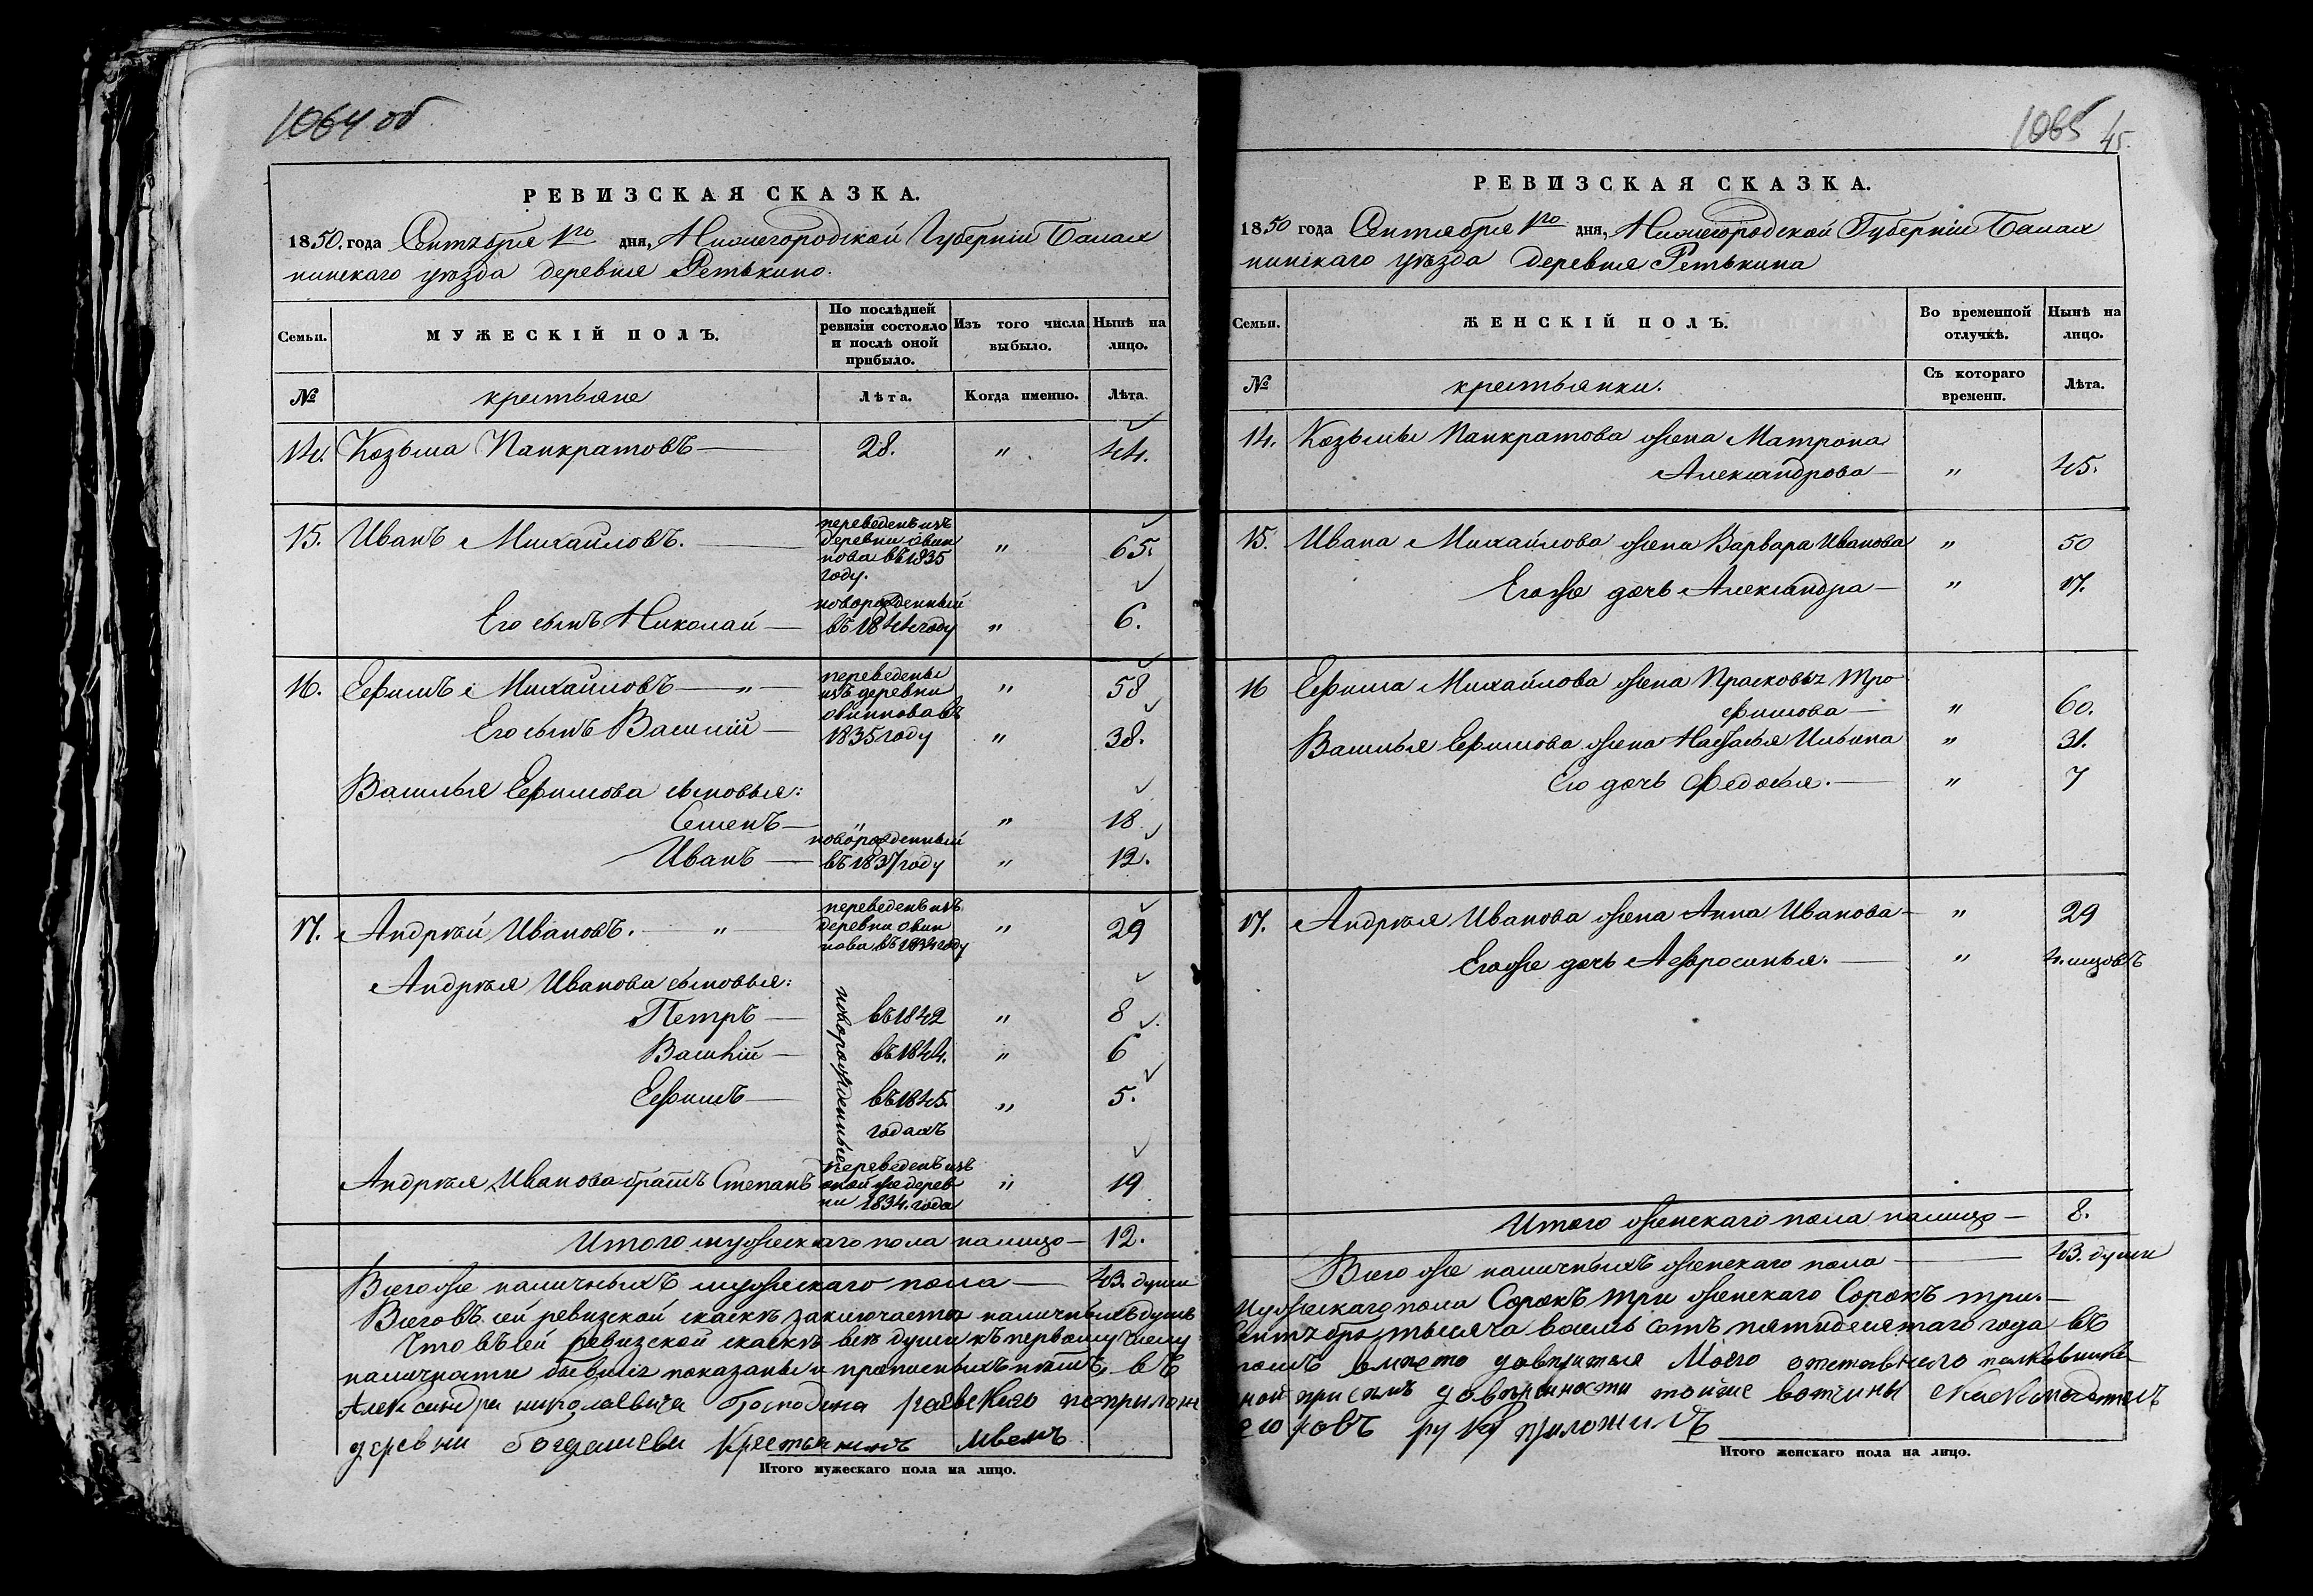 1064 об
РЕВИЗСКАЯ СКАЗКА.
1850. года Сентября 1го дня, Нижегородской Губерніи Балах
нинскаго уѣзда деревня Ретькино.
Семьи.
МУЖЕСКІЙ ПОЛЪ.
По послѣдней ревизіи состояло и послѣ оной прибыло.
Изъ того числа выбыло.
Нынѣ на лицо.
№
крестьяне
Лѣта.
Когда именно.
Лѣта.
14. Козьма Панкратовъ — 28. " 44.
15. Иванъ Михайловъ. — переведенъ изъ деревни Овин нова въ 1835 году. " 65.
Его сынъ Николай — новорожденный въ 1844 году " 6.
16. Ефимъ Михайловъ — " — переведены изъ деревни " 58
Его сынъ Василій — Овиннова въ 1835 году " 38.
Василья Ефимова сыновья:
Семенъ — " " 18
Иванъ — новорожденный въ 1837 году " 12.
17. Андрѣй Ивановъ. — " — переведенъ изъ деревни Овин нова въ 1834 году " 29
Андрѣя Иванова сыновья:
новорожденные
Петръ — въ 1842 " 8
Василій — въ 1844. " 6
Ефимъ — въ 1845. " 5.
годахъ
Андрѣя Иванова братъ Степанъ переведенъ изъ оной же дерев ни 1834. года " 19
Итого мужескаго пола налицо — 12.
Всего же наличныхъ мужескаго пола — 43. души
Всего въ сей ревизской сказкѣ заключается наличныхъ душъ
Что въ сей ревизской сказкѣ всѣ души къ первому числу
наличности бывшіе показаны и прописныхъ нѣтъ, въ
Александра николаевича Господина по прилож
деревни крестьянинъ
Итого мужескаго пола на лицо.
1065 45.
РЕВИЗСКАЯ СКАЗКА.
1850 года Сентября 1го дня, Нижегородской Губерніи Балах
нинскаго уѣзда деревня Ретькина
Семьи.
ЖЕНСКІЙ ПОЛЪ.
Во временной отлучкѣ.
Нынѣ на лицо.
№
крестьянки.
Съ котораго времени.
Лѣта.
14. Козьмы Панкратова жена Матрона
Александрова — " 45.
15. Ивана Михайлова жена Варвара Иванова " 50
Егоже дочь Александра — " 17.
16 Ефима Михайлова жена Прасковья Тро
фимова — " 60.
Василья Ефимова жена Настасья Ильина " 31.
Его дочь Федосья. — " 7
17. Андрѣя Иванова жена Анна Иванова — " 29
Егоже дочь Афросинья. — " 4. мцовъ
Итого женскаго пола налицо — 8.
Всего же наличныхъ женскаго пола — 43. души
мужескаго пола Сорокъ три женскаго Сорокъ три. —
Сентября тысяча восемь сотъ пятидесятаго года въ
томъ вместо доверителя Моего отставнаго полковника
ной при семъ доверенности тойже вотчины
руку приложилъ
Итого женскаго пола на лицо.